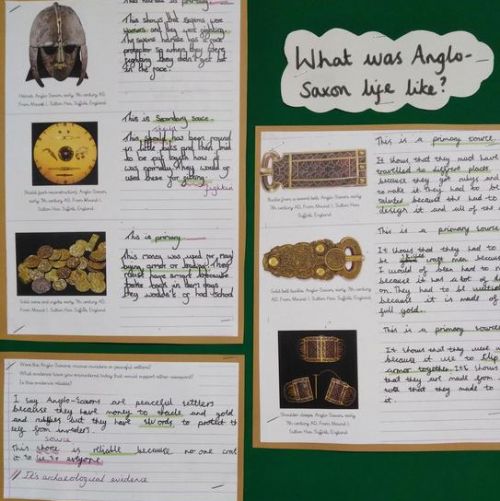 What was Anglo-
Saxon life like?
This helmet is primary
This shows that Saxons were
and they were fighting.
The saxons helmet has a face
protector so when they were
fighting they didn't get hit
in the face.
Helmet, Anglo-Saxon, early 7th century AD.
From Mound 1, Sutton Hoo, Suffolk, England.
This is Secondary souce
This shield has been found
in little and then
to be put togeth how it
was normaly. They would of
used these for
fightin
Shield (with reconstruction), Anglo-Saxon,
early 7th century AD. From Mound 1,
Sutton Hoo, Suffolk, England.
This is primary
This money was used for
buying armor or
have armor because
back in
they wouldn't of had School
Gold coins and ingots, early 7th century AD.
From Mound 1, Sutton Hoo, Suffolk, England.
Were the Anglo-Saxons vicious invaders or peaceful settlers?
What evidence have you encountered today that would support either viewpoint?
Is this evidence reliable?
I say Anglo-Saxons are peaceful settlers
because they have money to trade and gold
and but they have swords to protect th
from invaders.
source
This is reliable because no one
it to lie to eveyone
It's archaeological evidence
This is a primary source
It shows that they must have
travelled to different places
because they got rubies and
to make it. They had to be
talented because they had to
design it and all of the
Buckle from a sword belt, Anglo-Saxon, early
7th century AD. From Mound 1, Sutton Hoo,
Suffolk, England.
This is a primary source.
It shows that they had to
be craft men because
I would of been had to
because it was a lot of
on. They had to be
because it is made of
full gold.
Gold belt buckle, Anglo-Saxon, early 7th century
AD. From Mound 1, Sutton Hoo, Suffolk, England.
This is a primary source
It shows that they were
because it use to
armor together. It shows
that they are made from
with that they made to
it.
Shoulder-clasps, Anglo-Saxon, early
7th century AD. From Mound 1,
Sutton Hoo, Suffolk, England.